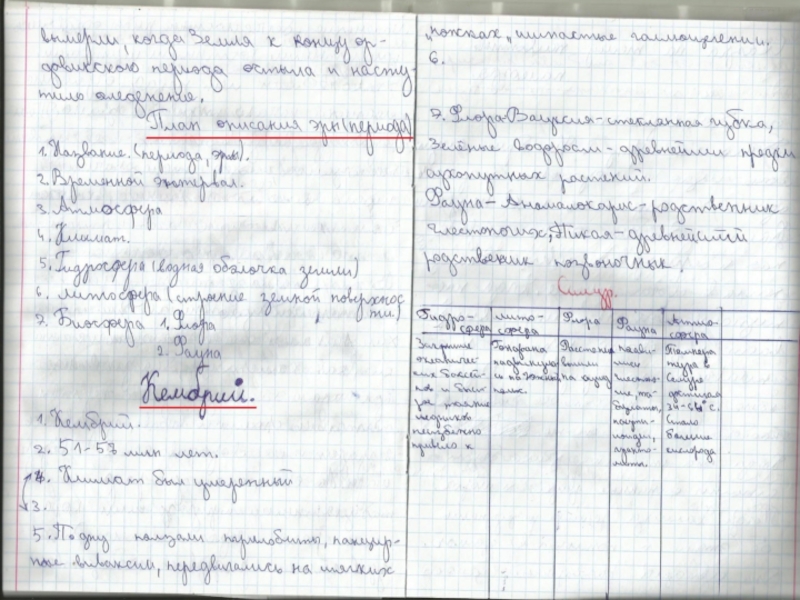 вымерли, когда Земля к концу ор-
довикского периода остыла и насту-
пило оледенение.
План описания эры (периода)
1. Название. (периода, эры).
2. Временной интервал.
3. Атмосфера
4. Климат.
5. Гидросфера (водная оболочка земли)
6. литосфера (строение земной поверхнос
ти.)
7. Биосфера 1. Флора
2. Фауна
Кембрий.
1. Кембрий.
2. 51-53 млн лет.
4. Климат был умеренный
3.
5. По дну ползали трилобиты, панцир-
ные виваксии, передвигались на мягких
„ножках„ шипастые галлюцигении.
6.
7. Флора-Вауксия-стеклянная губка,
Зелёные водоросли-древнейшии предки
сухопутных растений.
Фауна-Аномалокарис-родственник
членистоногих, Пикая-древнейший
родственик позвоночных.
Силур.
Гидро-
сфера
лито-
сфера
Флора
Фауна
Атмо-
сфера
Закрытие
океаничес-
ких бассей-
нов и быст-
рое таяние
ледников
неизбежно
привело к
Гондвана
надвиную
Растения
вышли
на сушу
появи-
лись
Темпера
тура в
Силуре
достигала
Стало
больше
кислорода